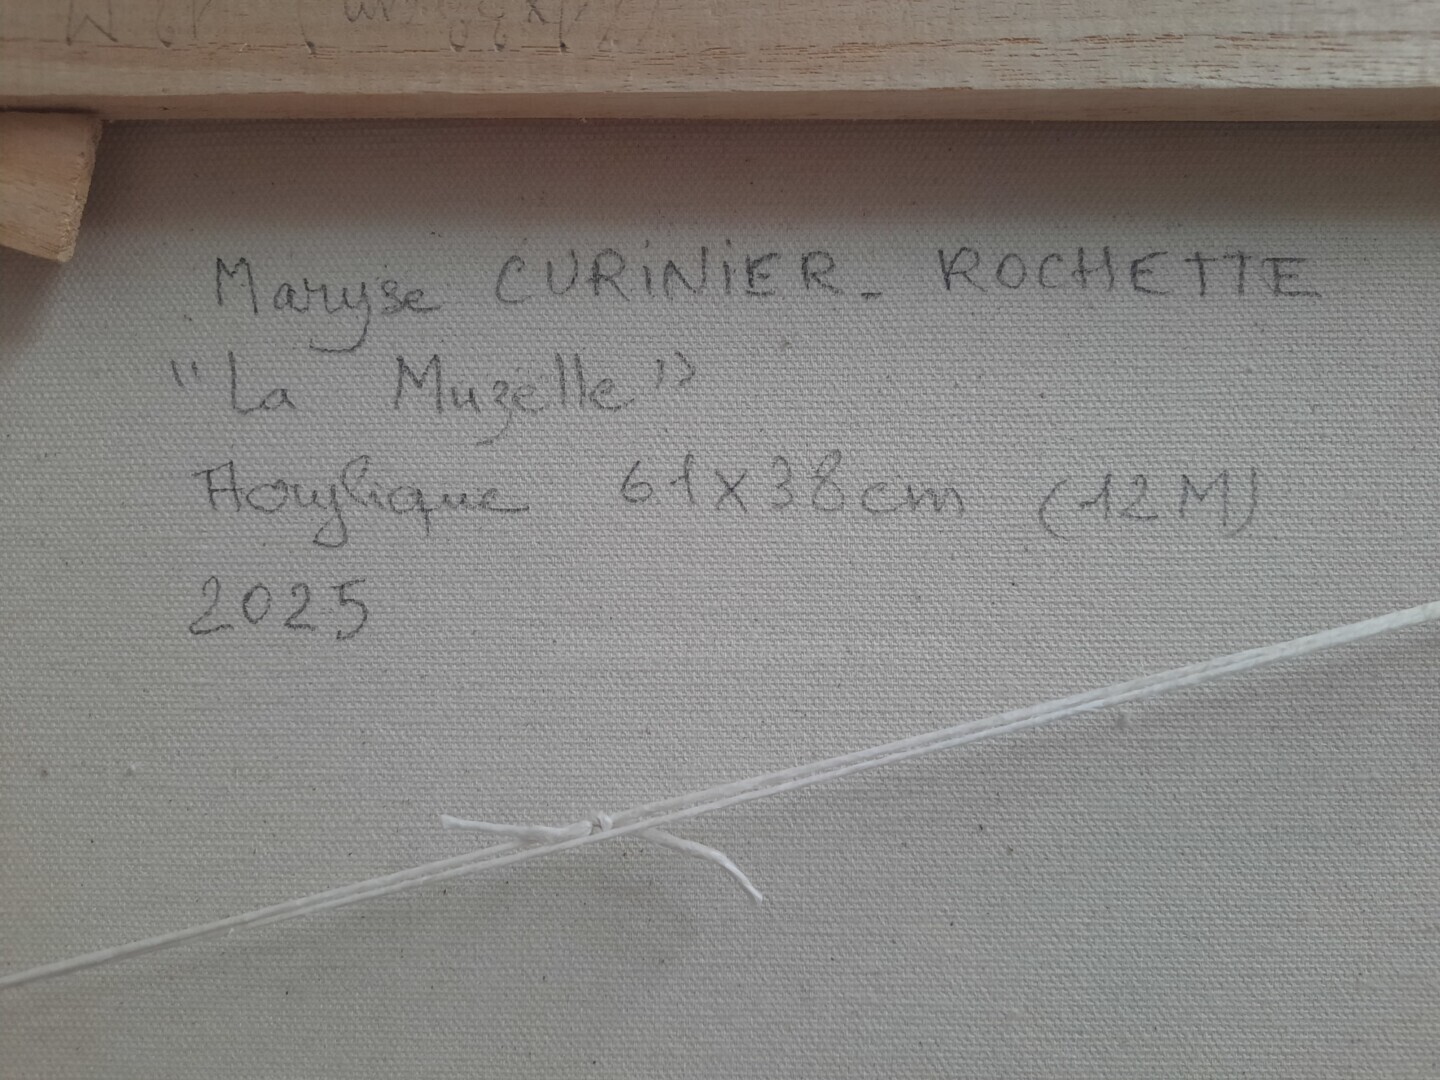 Maryse CURINIER - ROCHETTE
"La Muzelle"
Acrylique 61x38cm (12M)
2025